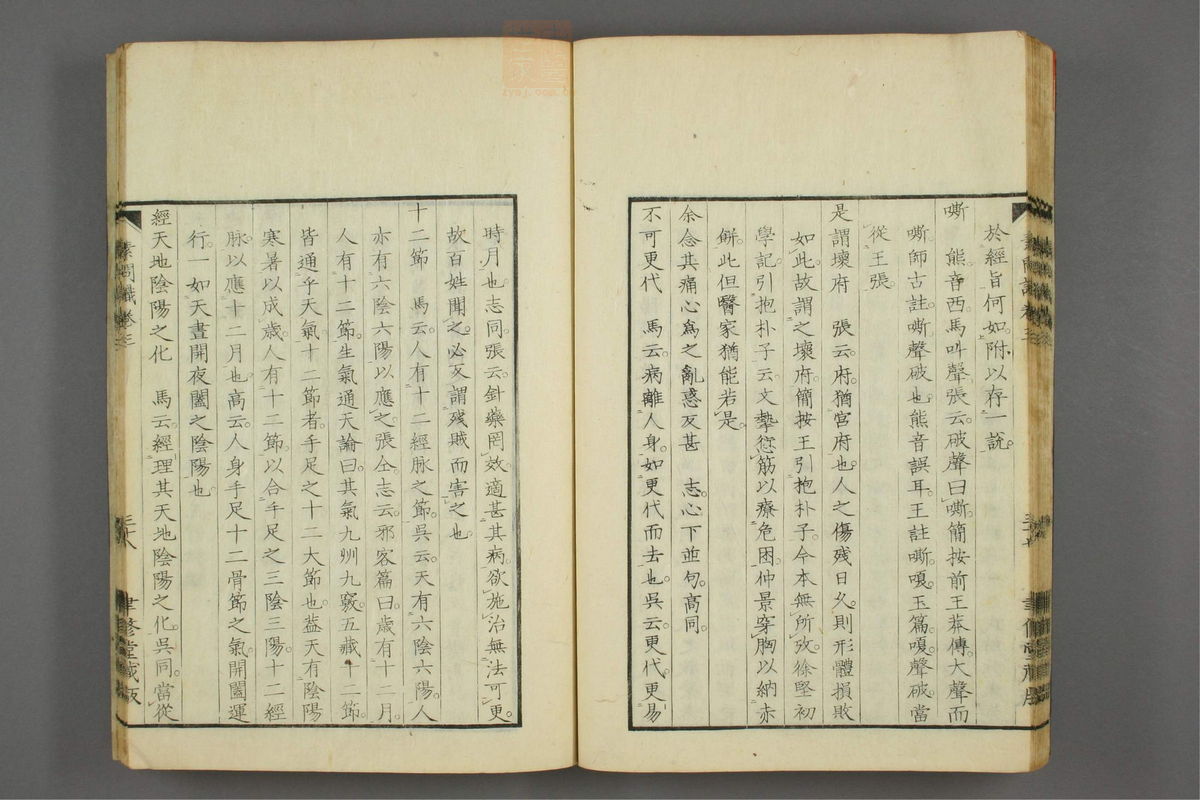 於經旨何如附以存一說。
嘶　熊音西。馬叫聲。張云。破聲曰嘶。簡按前王莽傳。大聲而
嘶。師古註。嘶聲破也。熊音誤耳。王註。嘶嗄。玉篇。嗄。聲破。當
從王張。
是謂壞府　張云。府。猶宮府也。人之傷殘日久。則形體損敗
如此。故謂之壞府。簡按王引抱朴子。今本無所攷。徐堅初
學記。引抱朴子云。文摯愆筋以療危困。仲景穿胸以納赤
餅。此但醫家猶能若是。
余念其痛心為之亂惑反甚　志。心下並句。高同。
不可更代　馬云。病離人身。如更代而去也。吳云。更代。更易
時月也。志同。張云。針藥罔效。適甚其病。欲施治無法可更。
故百姓聞之。必反謂殘賊而害之也。
十二節　馬云。人有十二經脉之節。吳云。天有六陰六陽。人
亦有六陰六陽以應之。張仝。志云。邪客篇曰。歲有十二月。
人有十二節。生氣通天論曰。其氣九州九竅。五藏十二節。
皆通乎天氣。十二節者。手足之十二大節也。蓋天有陰陽
寒暑以成歲。人有十二節。以合手足之三陰三陽。十二經
脉。以應十二月也。高云。人身手足十二骨節之氣。開闔運
行。一如天晝開夜闔之陰陽也。
經天地陰陽之化　馬云。經理其天地陰陽之化。吳同。當從
素問識卷三
三十八
聿修堂藏版